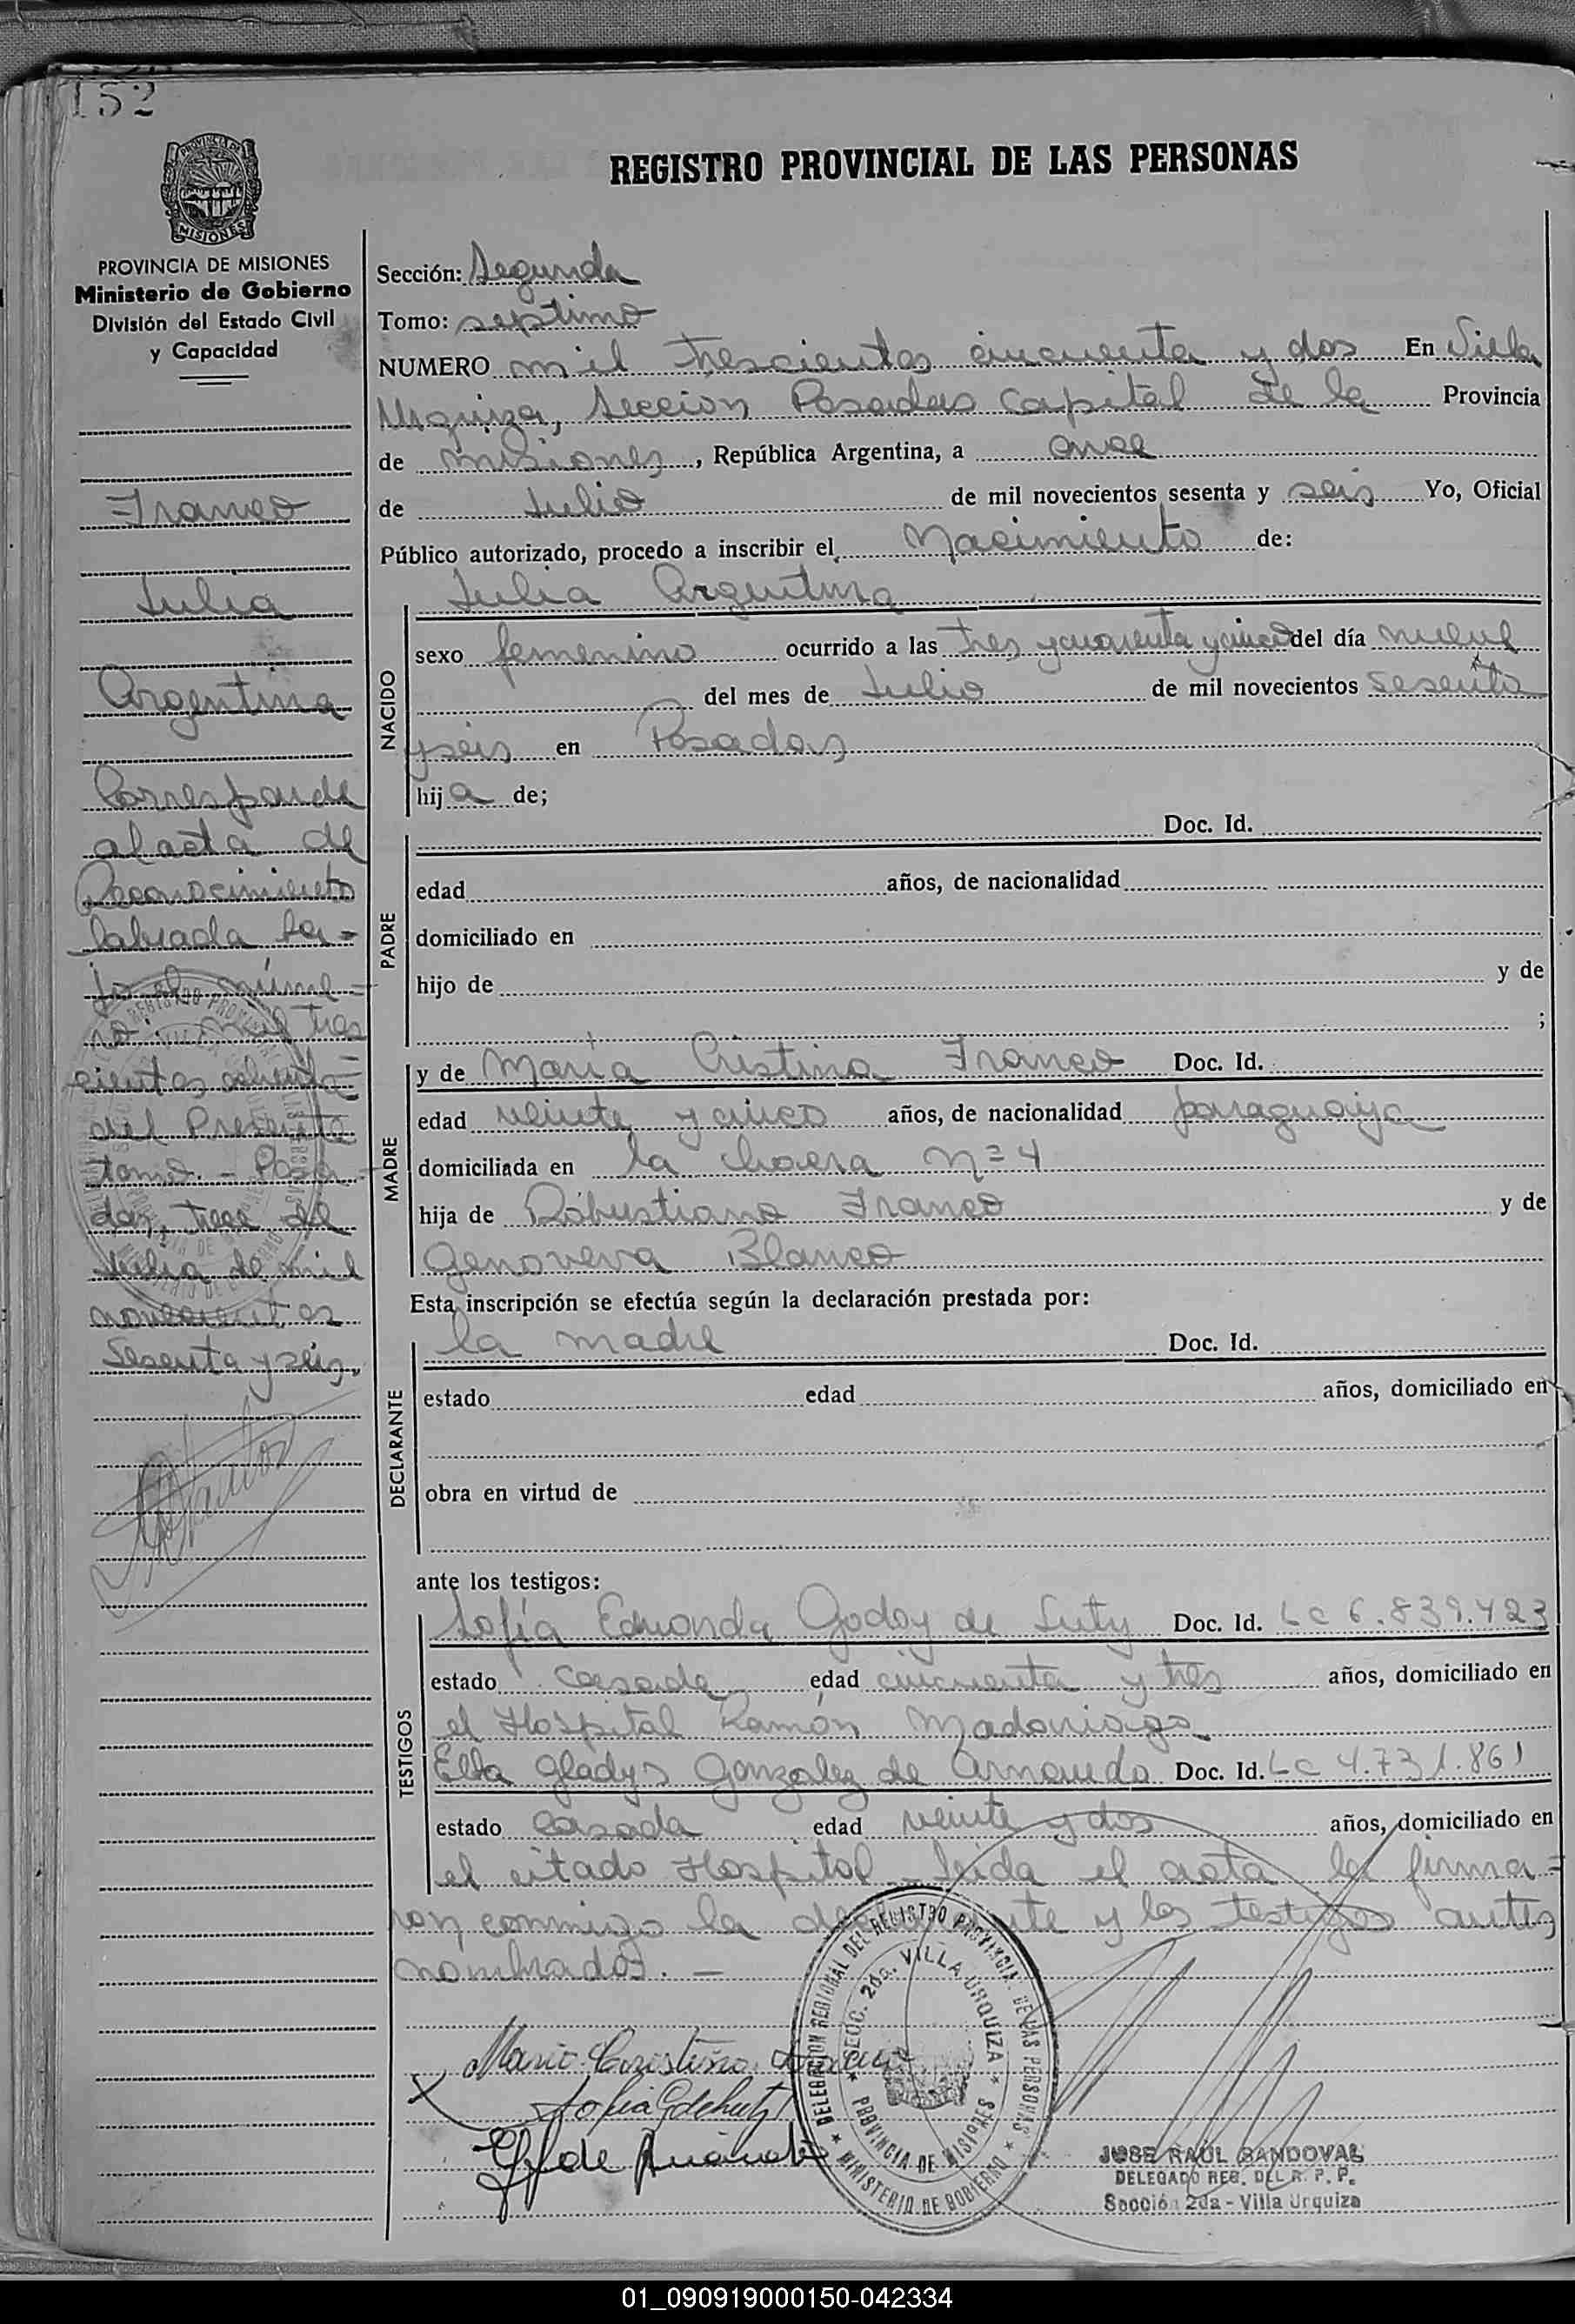 152
REGISTRO PROVINCIAL DE LAS PERSONAS
PROVINCIA DE MISIONES
Ministerio de Gobierno
División del Estado Civil
y Capacidad
Franco
Julia
Argentina
Corresponde
al acta de
Reconocimiento
labrada ba-
jo el núme-
ro: mil tres
cientos ochenta
del Presente
tomo. - Posa-
das, trece de
Julio de mil
novecientos
Sesenta y seis.
Sección: Segunda
Tomo: septimo
NUMERO mil trescientos cincuenta y dos En Villa
Urquiza, Seccion Posadas Capital de la Provincia
de misiones, República Argentina, a once
de Julio de mil novecientos sesenta y seis Yo, Oficial
Público autorizado, procedo a inscribir el Nacimiento de:
Julia Argentina
NACIDO
sexo femenino ocurrido a las tres y cuarenta y cinco del día nueve
del mes de Julio de mil novecientos sesenta
y seis en Posadas
hija de;
Doc. Id.
PADRE
edad años, de nacionalidad
domiciliado en
hijo de y de
;
MADRE
y de María Cristina Franco Doc. Id.
edad veinte y cinco años, de nacionalidad paraguaya
domiciliada en la chacra Nº 4
hija de Robustiano Franco y de
Genoveva Blanco
Esta inscripción se efectúa según la declaración prestada por:
DECLARANTE
la madre Doc. Id.
estado edad años, domiciliado en
obra en virtud de
ante los testigos:
TESTIGOS
Sofía Eduarda Godoy de Doc. Id. Lc 6.839.423
estado casada edad cincuenta y tres años, domiciliado en
el Hospital Ramón Madariaga
Elba Gladys Gonzalez de Doc. Id. Lc 4.731.861
estado casada edad veinte y dos años, domiciliado en
el citado Hospital. Leida el acta la firma=
ron conmigo la declarante y los testigos antes
nombrados. -
Maria Cristina Franco
DELEGACION REGIONAL DEL REGISTRO PROVINCIAL DE LAS PERSONAS
SECC. 2da. VILLA URQUIZA
PROVINCIA DE MISIONES
MINISTERIO DE GOBIERNO
JOSE RAUL SANDOVAL
DELEGADO REG. DEL R. P. P.
Sección 2da - Villa Urquiza
01_090919000150-042334